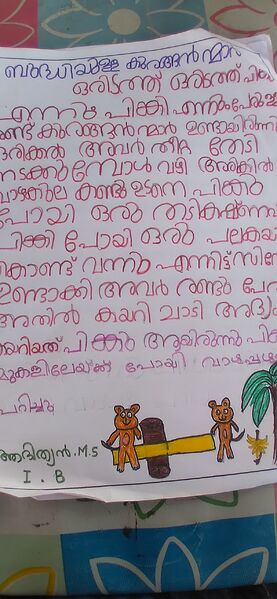 ബുദ്ധിയുള്ള കുരങ്ങൻന്മാർ
ഒരിടത്ത് ഒരിടത്ത് പിങ്കു
എന്നും പിങ്കി എന്നും പേരുള്ള
രണ്ട് കുരങ്ങൻന്മാർ ഉണ്ടായിരുന്നു
ഒരിക്കൽ അവർ തീറ്റ തേടി
നടക്കുമ്പോൾ വഴി അരികിൽ
വാഴക്കുല കണ്ടു ഉടനെ പിങ്കു
പോയി ഒരു തടികഷ്ണം
പിങ്കി പോയി ഒരു പലകയും
കൊണ്ട് വന്നു എന്നിട്ട് സീസോ
ഉണ്ടാക്കി അവർ രണ്ടും പേരും
അതിൽ കയറി ചാടി ആദ്യം
കയറിയത് പിങ്കു ആയിരുന്നു പിങ്കി
മുകളിലേയ്ക്ക് പോയി വാഴപ്പഴം
പറിച്ചു
ആദിത്യൻ.M.S
I. B